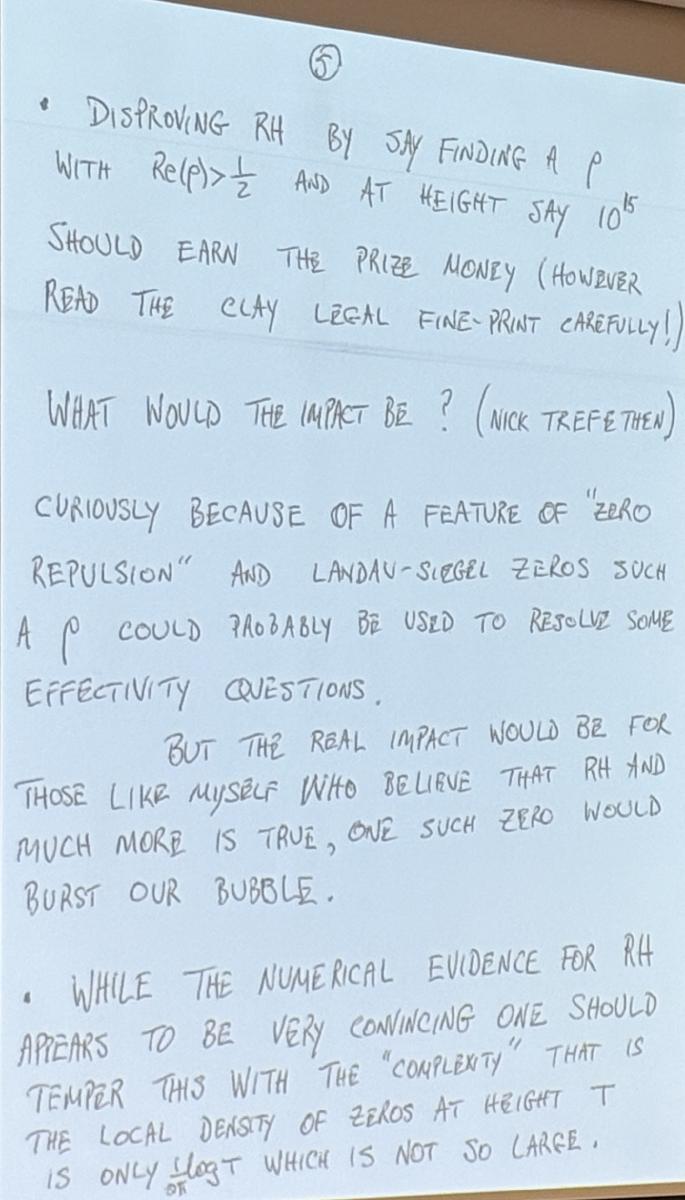 ⑤
• DISPROVING RH BY SAY FINDING A ρ
WITH Re(ρ)>1/2 AND AT HEIGHT SAY 10^15
SHOULD EARN THE PRIZE MONEY (HOWEVER
READ THE CLAY LEGAL FINE-PRINT CAREFULLY!)
WHAT WOULD THE IMPACT BE ? (NICK TREFETHEN)
CURIOUSLY BECAUSE OF A FEATURE OF "ZERO
REPULSION" AND LANDAU-SIEGEL ZEROS SUCH
A ρ COULD PROBABLY BE USED TO RESOLVE SOME
EFFECTIVITY QUESTIONS.
BUT THE REAL IMPACT WOULD BE FOR
THOSE LIKE MYSELF WHO BELIEVE THAT RH AND
MUCH MORE IS TRUE, ONE SUCH ZERO WOULD
BURST OUR BUBBLE.
• WHILE THE NUMERICAL EVIDENCE FOR RH
APPEARS TO BE VERY CONVINCING ONE SHOULD
TEMPER THIS WITH THE "COMPLEXITY" THAT IS
THE LOCAL DENSITY OF ZEROS AT HEIGHT T
IS ONLY 1/2π log T WHICH IS NOT SO LARGE.